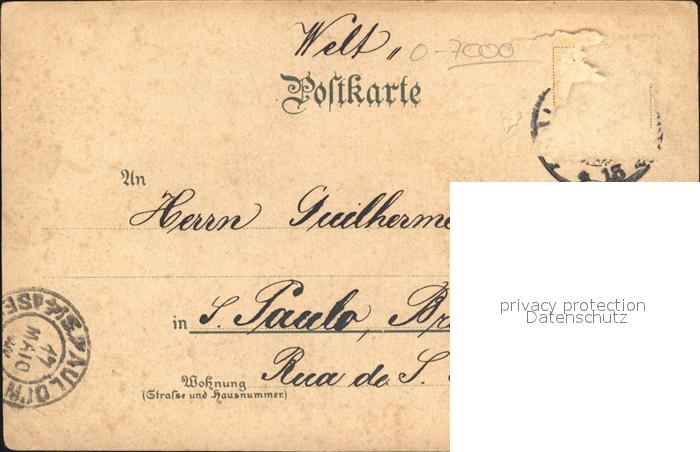 Welt„
0-7000
Postkarte
13
An
Herrn Guilherme
in S. Paulo, Br
Rua de S.
Wohnung
(Strasse und Hausnummer)
S. PAULO
17
MAIO
privacy protection
Datenschutz